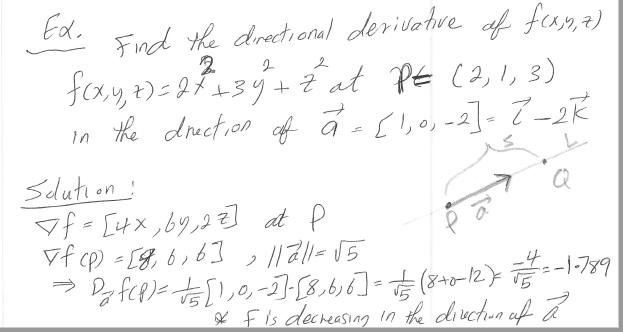 Ex. Find the directional derivative of f(x,y,z)
f(x,y,z) = 2x² + 3y² + z² at P = (2, 1, 3)
in the direction of a⃗ = [1, 0, -2] = i⃗ - 2k⃗
S L
Q
P a⃗
Solution:
∇f = [4x, 6y, 2z] at P
∇f(P) = [8, 6, 6], ||a⃗|| = √5
⇒ Dₐ⃗ f(P) = 1/√5 [1, 0, -2]·[8, 6, 6] = 1/√5 (8+0-12) = -4/√5 = -1.789
* f is decreasing in the direction of a⃗